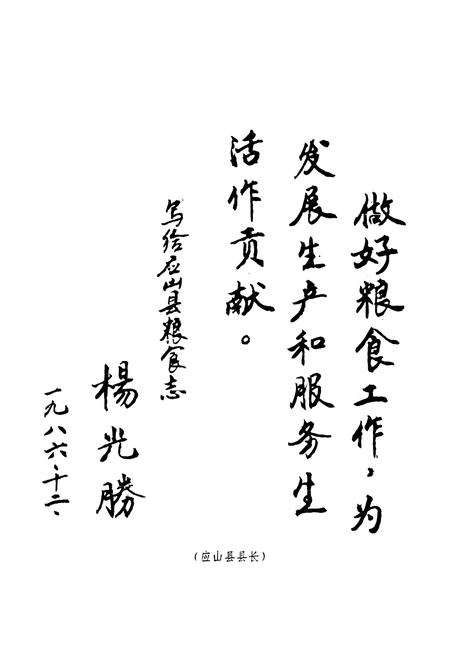 做好粮食工作，为
发展生产和服务生
活作贡献。
写给应山县粮食志
楊光勝
一九八六、十二、
（应山县县长）